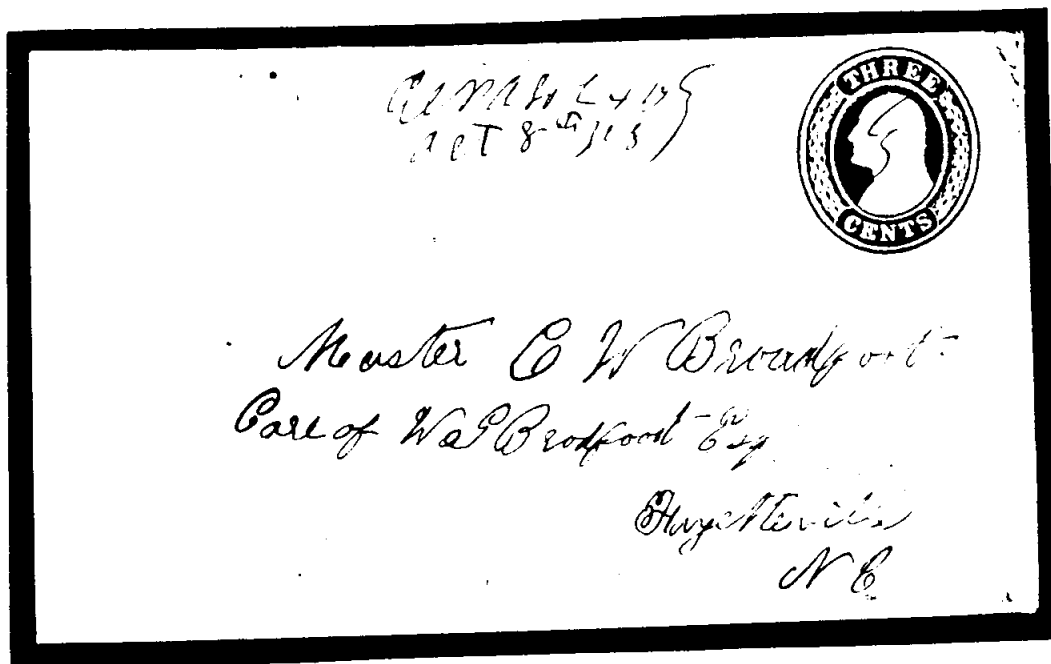 THREE
CENTS
Oct 8th
Master C W Broadfoot
Care of W G Broadfoot Esq
Fayetteville
N C